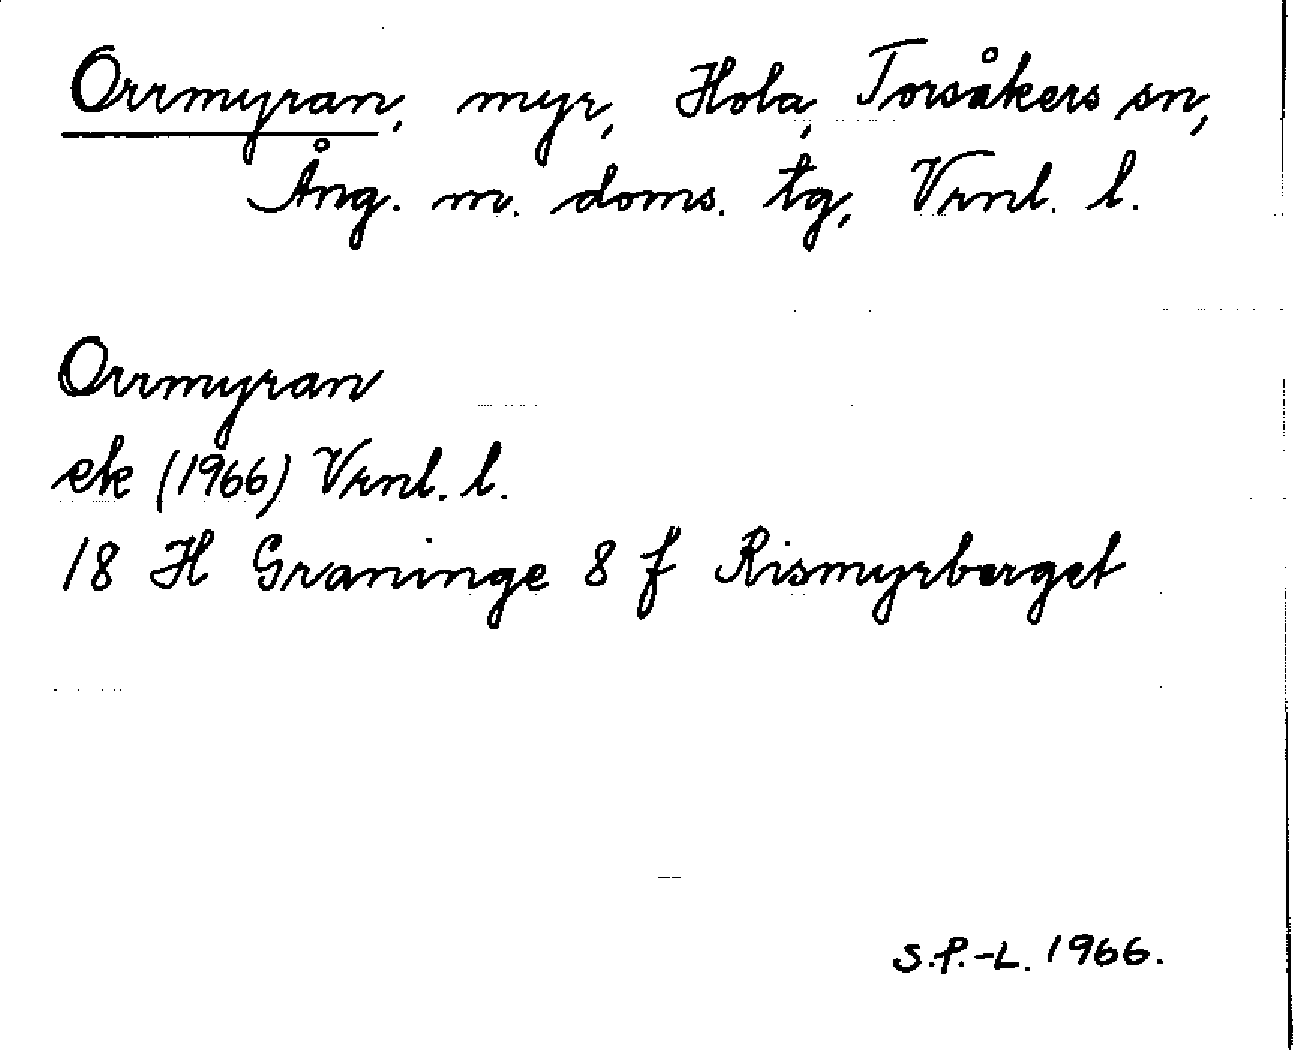 Orrmyran, myr, Hola, Torsåkers sn,
Ång. m. doms. tg, Vrnl. l.
Orrmyran
ek (1966) Vrnl. l.
18 H Graninge 8 f Rismyrberget
S.P.-L. 1966.